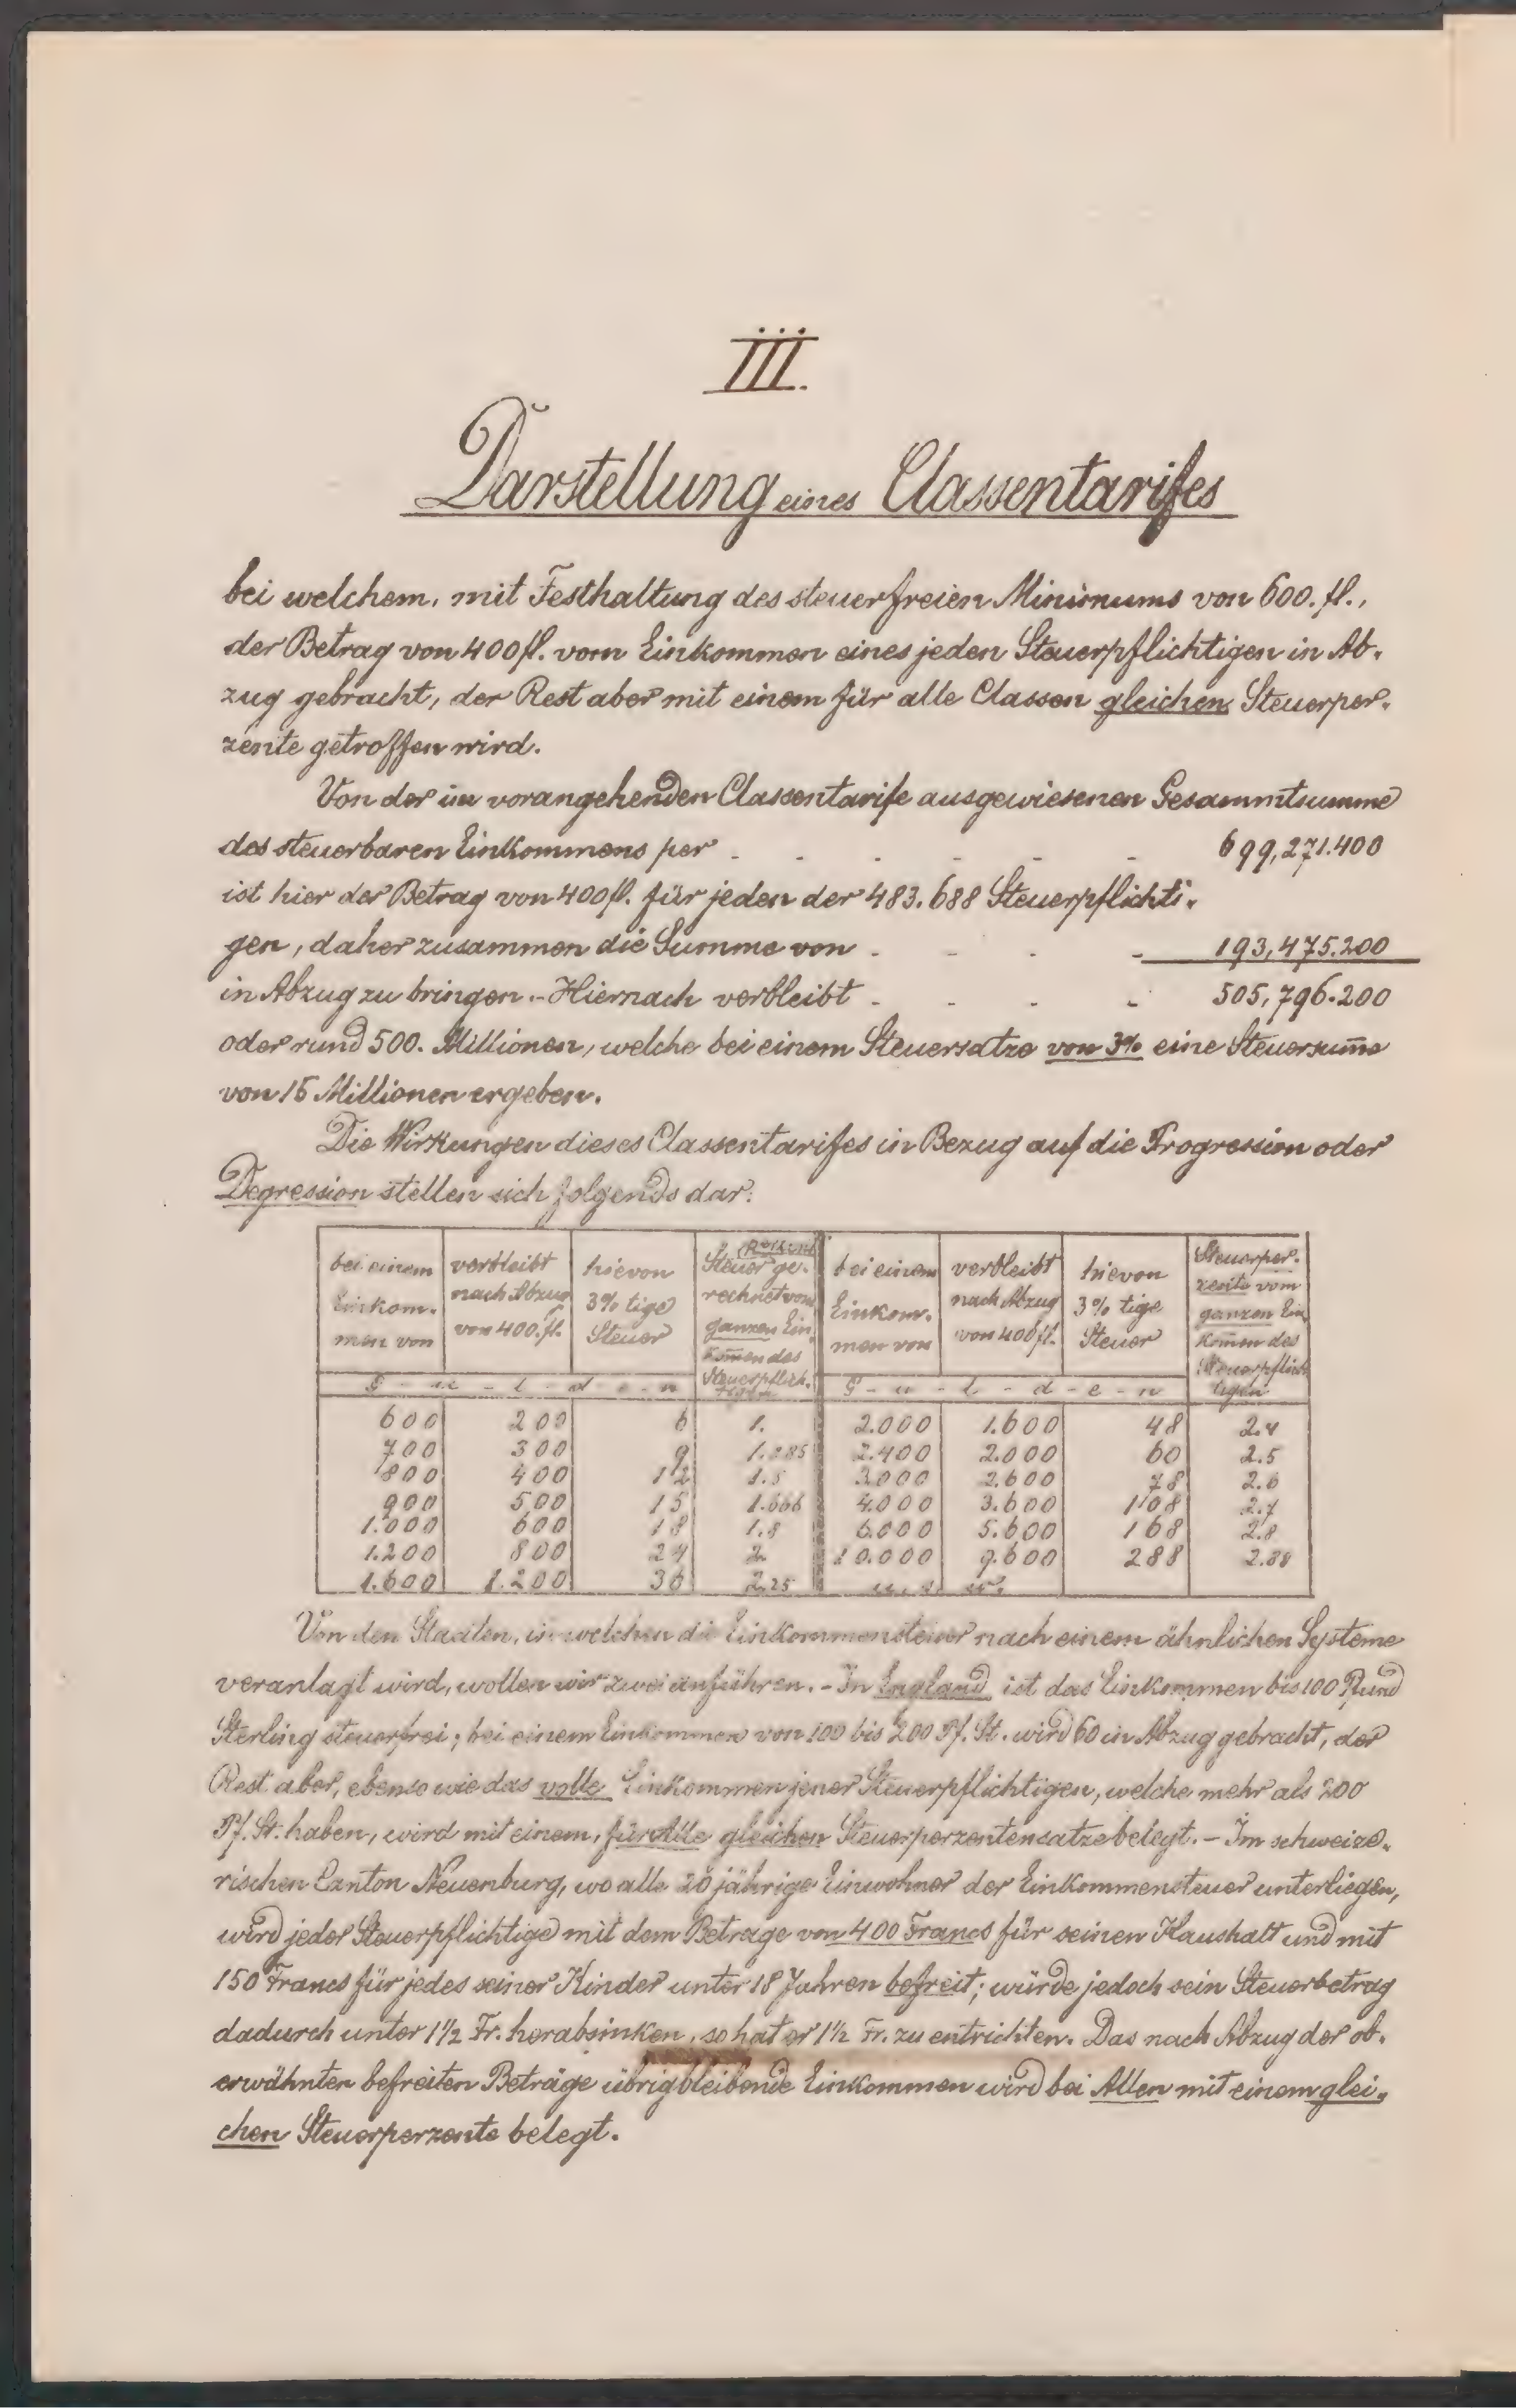 III.
Darstellung eines Classentarifes
bei welchem, mit Festhaltung des steuerfreien Minimums von 600. fl.,
der Betrag von 400 fl. vom Einkommen eines jeden Steuerpflichtigen in Ab-
zug gebracht, der Rest aber mit einem für alle Classen gleichen Steuerper-
zente getroffen wird.
Von der im vorangehenden Classentarife ausgewiesenen Gesammtsumme
des steuerbaren Einkommens per - - - - - - 699,271.400
ist hier der Betrag von 400 fl. für jeden der 483.688 Steuerpflichti-
gen, daher zusammen die Summe von - - - - 193,475.200
in Abzug zu bringen. - Hiernach verbleibt - - - - 505,796.200
oder rund 500. Millionen, welche bei einem Steuersatze von 3% eine Steuersum̄e
von 15 Millionen ergeben.
Die Wirkungen dieses Classentarifes in Bezug auf die Progression oder
Degression stellen sich folgends dar:
bei einem Einkom- men von | verbleibt nach Abzug von 400. fl. | hievon 3% tige Steuer | Steuer ge- rechnet vom ganzen Ein- kom̄en des Steuerpflich- tigen | bei einem Einkom- men von | verbleibt nach Abzug von 400 fl. | hievon 3% tige Steuer | Steuerper- zente vom ganzen Ein- kom̄en des Steuerpflich- tigen
G - u - l - d - e - n | G - u - l - d - e - n
600 | 200 | 6 | 1. | 2.000 | 1.600 | 48 | 2.4
700 | 300 | 9 | 1.285 | 2.400 | 2.000 | 60 | 2.5
800 | 400 | 12 | 1.5 | 3.000 | 2.600 | 78 | 2.6
900 | 500 | 15 | 1.666 | 4.000 | 3.600 | 108 | 2.7
1.000 | 600 | 18 | 1.8 | 6.000 | 5.600 | 168 | 2.8
1.200 | 800 | 24 | 2. | 10.000 | 9.600 | 288 | 2.88
1.600 | 1.200 | 36 | 2.25 | u. s. w.
Von den Staaten, in welchen die Einkommensteuer nach einem ähnlichen Systeme
veranlagt wird, wollen wir zwei anführen. - In England ist das Einkommen bis 100 Pfund
Sterling steuerfrei; bei einem Einkommen von 100 bis 200 Pf. St. wird 60 in Abzug gebracht, der
Rest aber, ebenso wie das volle Einkommen jener Steuerpflichtigen, welche mehr als 200
Pf. St. haben, wird mit einem, für Alle gleichen Steuerperzentensatze belegt. - Im schweize-
rischen Canton Neuenburg, wo alle 20 jährige Einwohner der Einkommensteuer unterliegen,
wird jeder Steuerpflichtige mit dem Betrage von 400 Francs für seinen Haushalt und mit
150 Francs für jedes seiner Kinder unter 18 Jahren befreit; würde jedoch sein Steuerbetrag
dadurch unter 1½ Fr. herabsinken, so hat er 1½ Fr. zu entrichten. Das nach Abzug der ob-
erwähnten befreiten Beträge übrigbleibende Einkommen wird bei Allen mit einem glei-
chen Steuerperzente belegt.